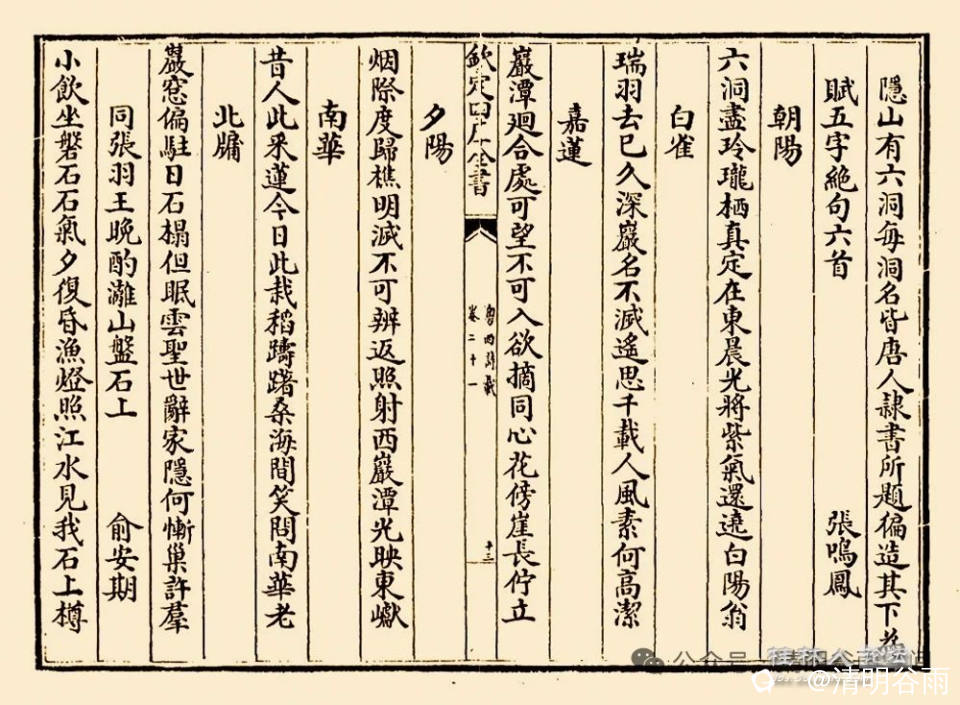 隱山有六洞每洞名皆唐人隷書所題徧造其下為
賦五字絶句六首
張鳴鳳
朝陽
六洞盡玲瓏栖真定在東晨光將紫氣還遶白陽翁
白雀
瑞羽去已久深巖名不滅遙思千載人風素何高潔
嘉蓮
巖潭廻合處可望不可入欲摘同心花傍崖長佇立
欽定四庫全書
粤西詩載
卷二十一
十三
夕陽
烟際度歸樵明滅不可辨返照射西巖潭光映東巘
南華
昔人此采蓮今日此栽稻躊躇桑海間笑問南華老
北牖
巖窓偏駐日石榻但眠雲聖世辭家隱何慚巢許羣
同張羽王晚酌灕山盤石上
俞安期
小飲坐磐石石氣夕復昏漁燈照江水見我石上樽
公众号
桂林
@清明谷雨